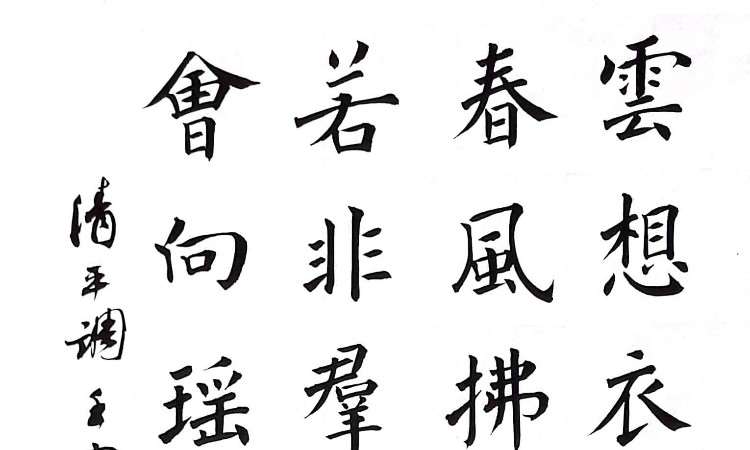 雲想衣
春風拂
若非羣
會向瑶
清平調